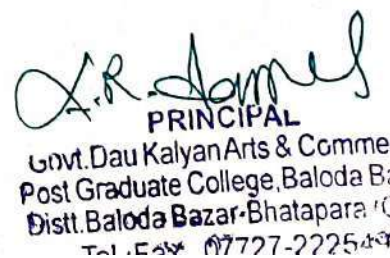 PRINCIPAL
Govt.Dau Kalyan Arts & Comme
Post Graduate College, Baloda Ba
Distt.Baloda Bazar-Bhatapara (C
Tel.:Fax 07727-222549